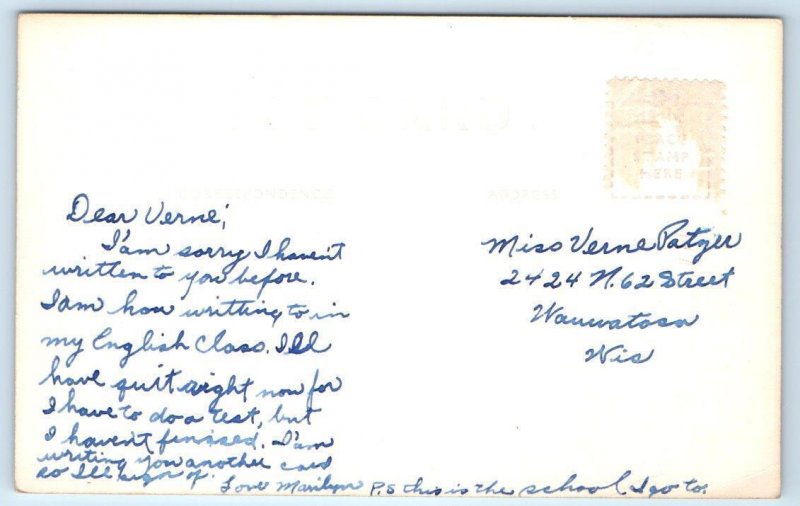 CORRESPONDENCE
ADDRESS
PLACE
STAMP
HERE
Dear Verne;
I'am sorry I haven't
written to you before.
I am how writting to in
my English Class. I'll
have quit right now for
I have to do a test, but
I haven't finissed. I'am
writing you another card
so I'll sign of.
Love Marilyn P.S this is the school I go to.
Miss Verne Patzer
2424 N. 62 Street
Wauwatosa
Wis